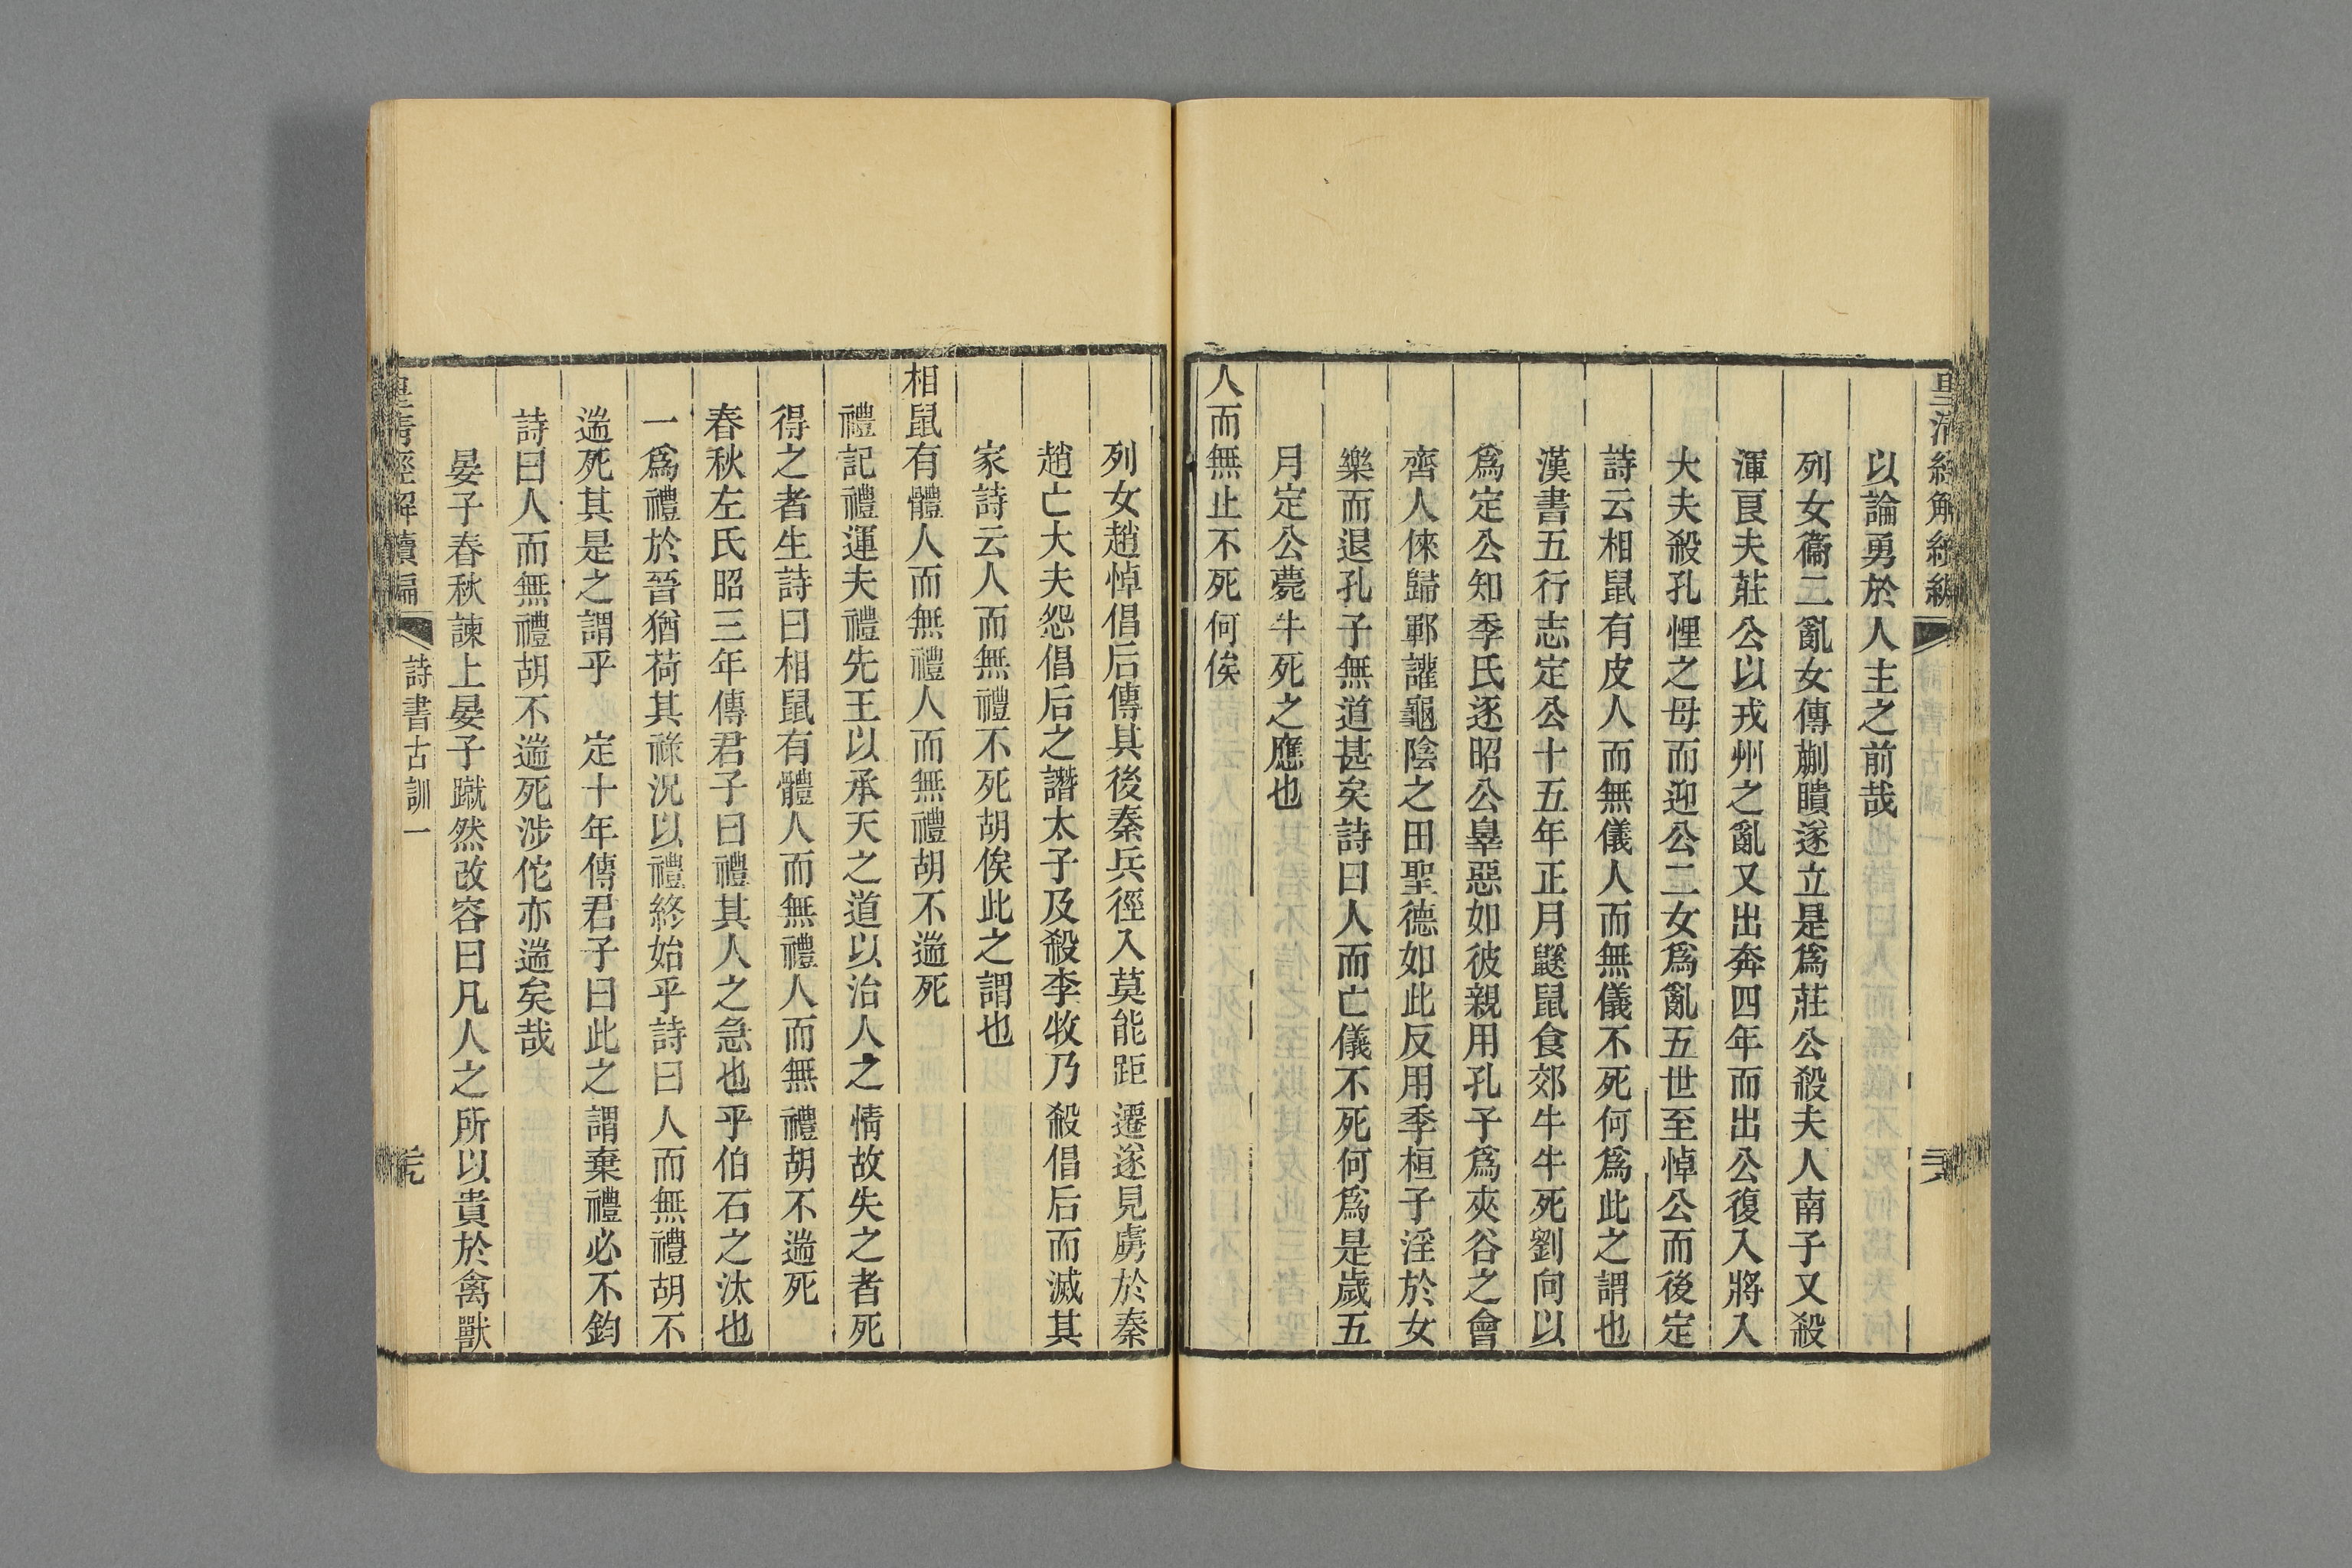 皇清經解續編
以論勇於人主之前哉
列女衞二亂女傳蒯聵遂立是爲莊公殺夫人南子又殺
渾良夫莊公以戎州之亂又出奔四年而出公復入將入
大夫殺孔悝之母而迎公二女爲亂五世至悼公而後定
詩云相鼠有皮人而無儀人而無儀不死何爲此之謂也
漢書五行志定公十五年正月鼷鼠食郊牛牛死劉向以
爲定公知季氏逐昭公辠惡如彼親用孔子爲夾谷之會
齊人倈歸鄆讙龜陰之田聖德如此反用季桓子淫於女
樂而退孔子無道甚矣詩曰人而亡儀不死何爲是歲五
月定公薨牛死之應也
人而無止不死何俟
列女趙悼倡后傳其後秦兵徑入莫能距遷遂見虜於秦
趙亡大夫怨倡后之譖太子及殺李牧乃殺倡后而滅其
家詩云人而無禮不死胡俟此之謂也
相鼠有體人而無禮人而無禮胡不遄死
禮記禮運夫禮先王以承天之道以治人之情故失之者死
得之者生詩曰相鼠有體人而無禮人而無禮胡不遄死
春秋左氏昭三年傳君子曰禮其人之急也乎伯石之汰也
一爲禮於晉猶荷其祿況以禮終始乎詩曰人而無禮胡不
遄死其是之謂乎　定十年傳君子曰此之謂棄禮必不鈞
詩曰人而無禮胡不遄死涉佗亦遄矣哉
晏子春秋諫上晏子蹴然改容曰凡人之所以貴於禽獸
皇清經解續編　詩書古訓一